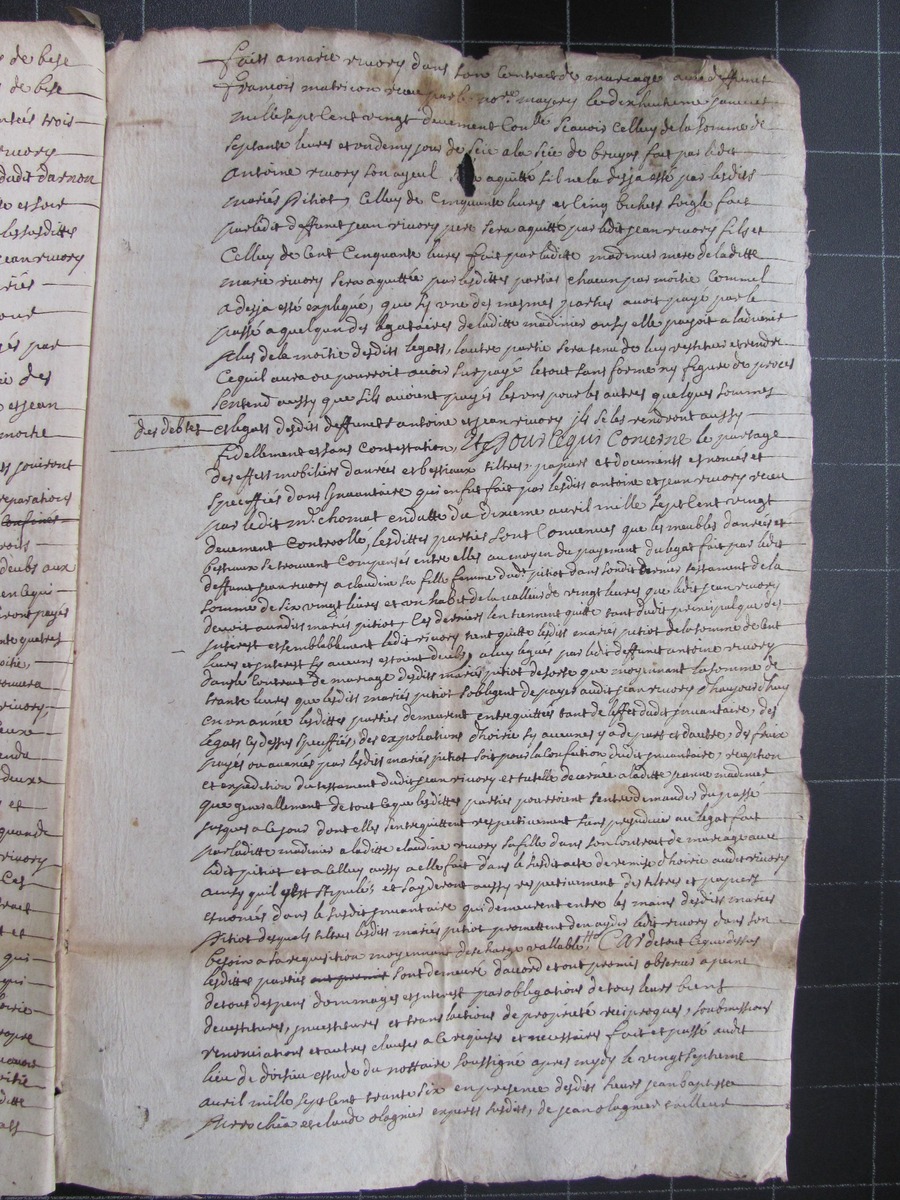 faits a marie rivory dans son Contract de mariage avec deffunt
francois matricon receu par le nore mayory le dixhuitieme janvier
mille sept Cent vingt deuement Conlle scavoir Celluy de la somme de
septante livres et un demy jour de scie a la scie de bruyas fait par ledit
Antoine rivory son ayeul sera aquitté sil ne la desja esté par lesdits
mariés pitiot, Celluy de Cinquante livres et Cinq bichets seigle fait
par ledit deffunt jean rivory pere sera aquitté par ledit jean rivory fils et
Celluy de Cent Cinquante livres fait par laditte madinier mere de laditte
marie rivory sera aquittée par lesdittes parties chacun par moitié Comme il
a desja esté expliqué, que sy une des mesmes parties avoit payé par le
passé a quelquun des legataires de laditte madinier ou sy elle payoit a ladvenir
plus de la moitié desdits legats, lautre partie sera tenue de luy restituer et rendre
Ce quil aura ou pourroit avoir surpayé le tout sans forme ny figure de proces
sentend aussy que sils avoient payés les uns pour les autres quelques sommes
des debtes et legats desdits deffunts antoine et jean rivory ils se les rendront aussy
fidellement et sans Contestation, Et Pour Ce qui Concerne le partage
des effets mobiliers danrées et bestiaux tiltres, papiers et documents enoncés et
specifiés dans linvantaire qui en fut fait par lesdits antoine et jean rivory receu
par ledit me chomat en datte du dixieme avril mille sept Cent vingt
deuement Controllé, lesdittes parties sont Convenues que les meubles danrées et
bestiaux se trouvent Compensés entre elles au moyen du payement du legat fait par ledit
deffunt jean rivory a claudine sa fille femme dudt pitiot dans sondit dernier testament de la
somme de six vingt livres et un habit de la valleur de vingt livres que ledit jean rivory
devoit auxdits mariés pitiot, Ces derniers len tiennent quitte tant dudit principal que des
interest et semblablement ledit rivory tient quitte lesdits mariés pitiot de la somme de Cent
livres et interest sy aucuns estoint deubs, a luy legués par ledit deffunt antoine rivory
dans le Contrant de mariage desdits mariés pitiot de sorte que moyennant la somme de
trante livres que lesdits mariés pitiot sobligent de payer audit jean rivory dhuy
en un année lesdittes parties demeurent entrequittées tant de leffet dudit invantaire, des
legats Cy dessus specifiés, des expoliations dhoirie sy aucunes y a de part et dautre, des fraix
payés ou avancés par lesdits mariés pitiot soit pour la Confection dudit invantaire, reception
et expedition du testament dudit jean rivory et tutelle decernée a laditte jeanne madinier
que generallement de tout Ce que lesdittes parties pourroient sentredemander du passé
jusques a Ce jour dont elles sentrequittent respectivement sans prejudice au legat fait
par laditte madinier a laditte claudine rivory sa fille dans son Contrat de mariage avec
ledit pitiot et a Celluy aussy a elle fait dans le susdit acte de remise dhoirie audit rivory
ainsy quil est stipulé; et sayderont aussy respectivement des tiltres et papiers
enoncés dans le susdit invantaire qui demeurent entre les mains desdits mariés
pitiot desquels tiltres lesdits mariés pitiot promettent den ayder ledit rivory dans son
besoin a sa requisition moyennant descharge vallable; Car de tout Ce que dessus
lesdittes parties ont promis sont demeuré dacord et ont promis observer a peine
de tous despens dommages et interest par obligations de tous leurs biens
devestitures, investitures et translations de proprieté reciproques, soubmissions
renonciations et autres clauses a Ce requises et necessaires fait et passé audit
lieu de doisieu estude du nottaire soussigné apres midy le vingt septieme
avril mille sept Cent trante six en presence desdits sieurs jean baptiste
pierrochia et claude olagnier experts susdits, de jean olagnier tailleur